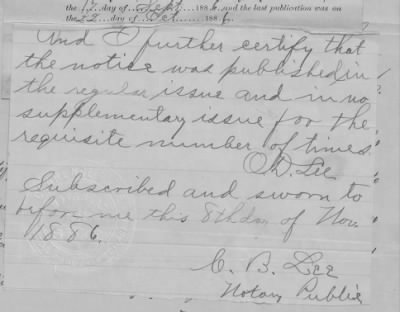 the 17 day of Sept 1886, and the last publication was on
the 22 day of Oct 1886
And I further certify that
the notice was published in
the regular issue and in no
supplementary issue for the
requisite number of times.
O. D. Lee
Subscribed and sworn to
before me this 8th day of Nov.
1886.
C. B. Lee
Notary Public